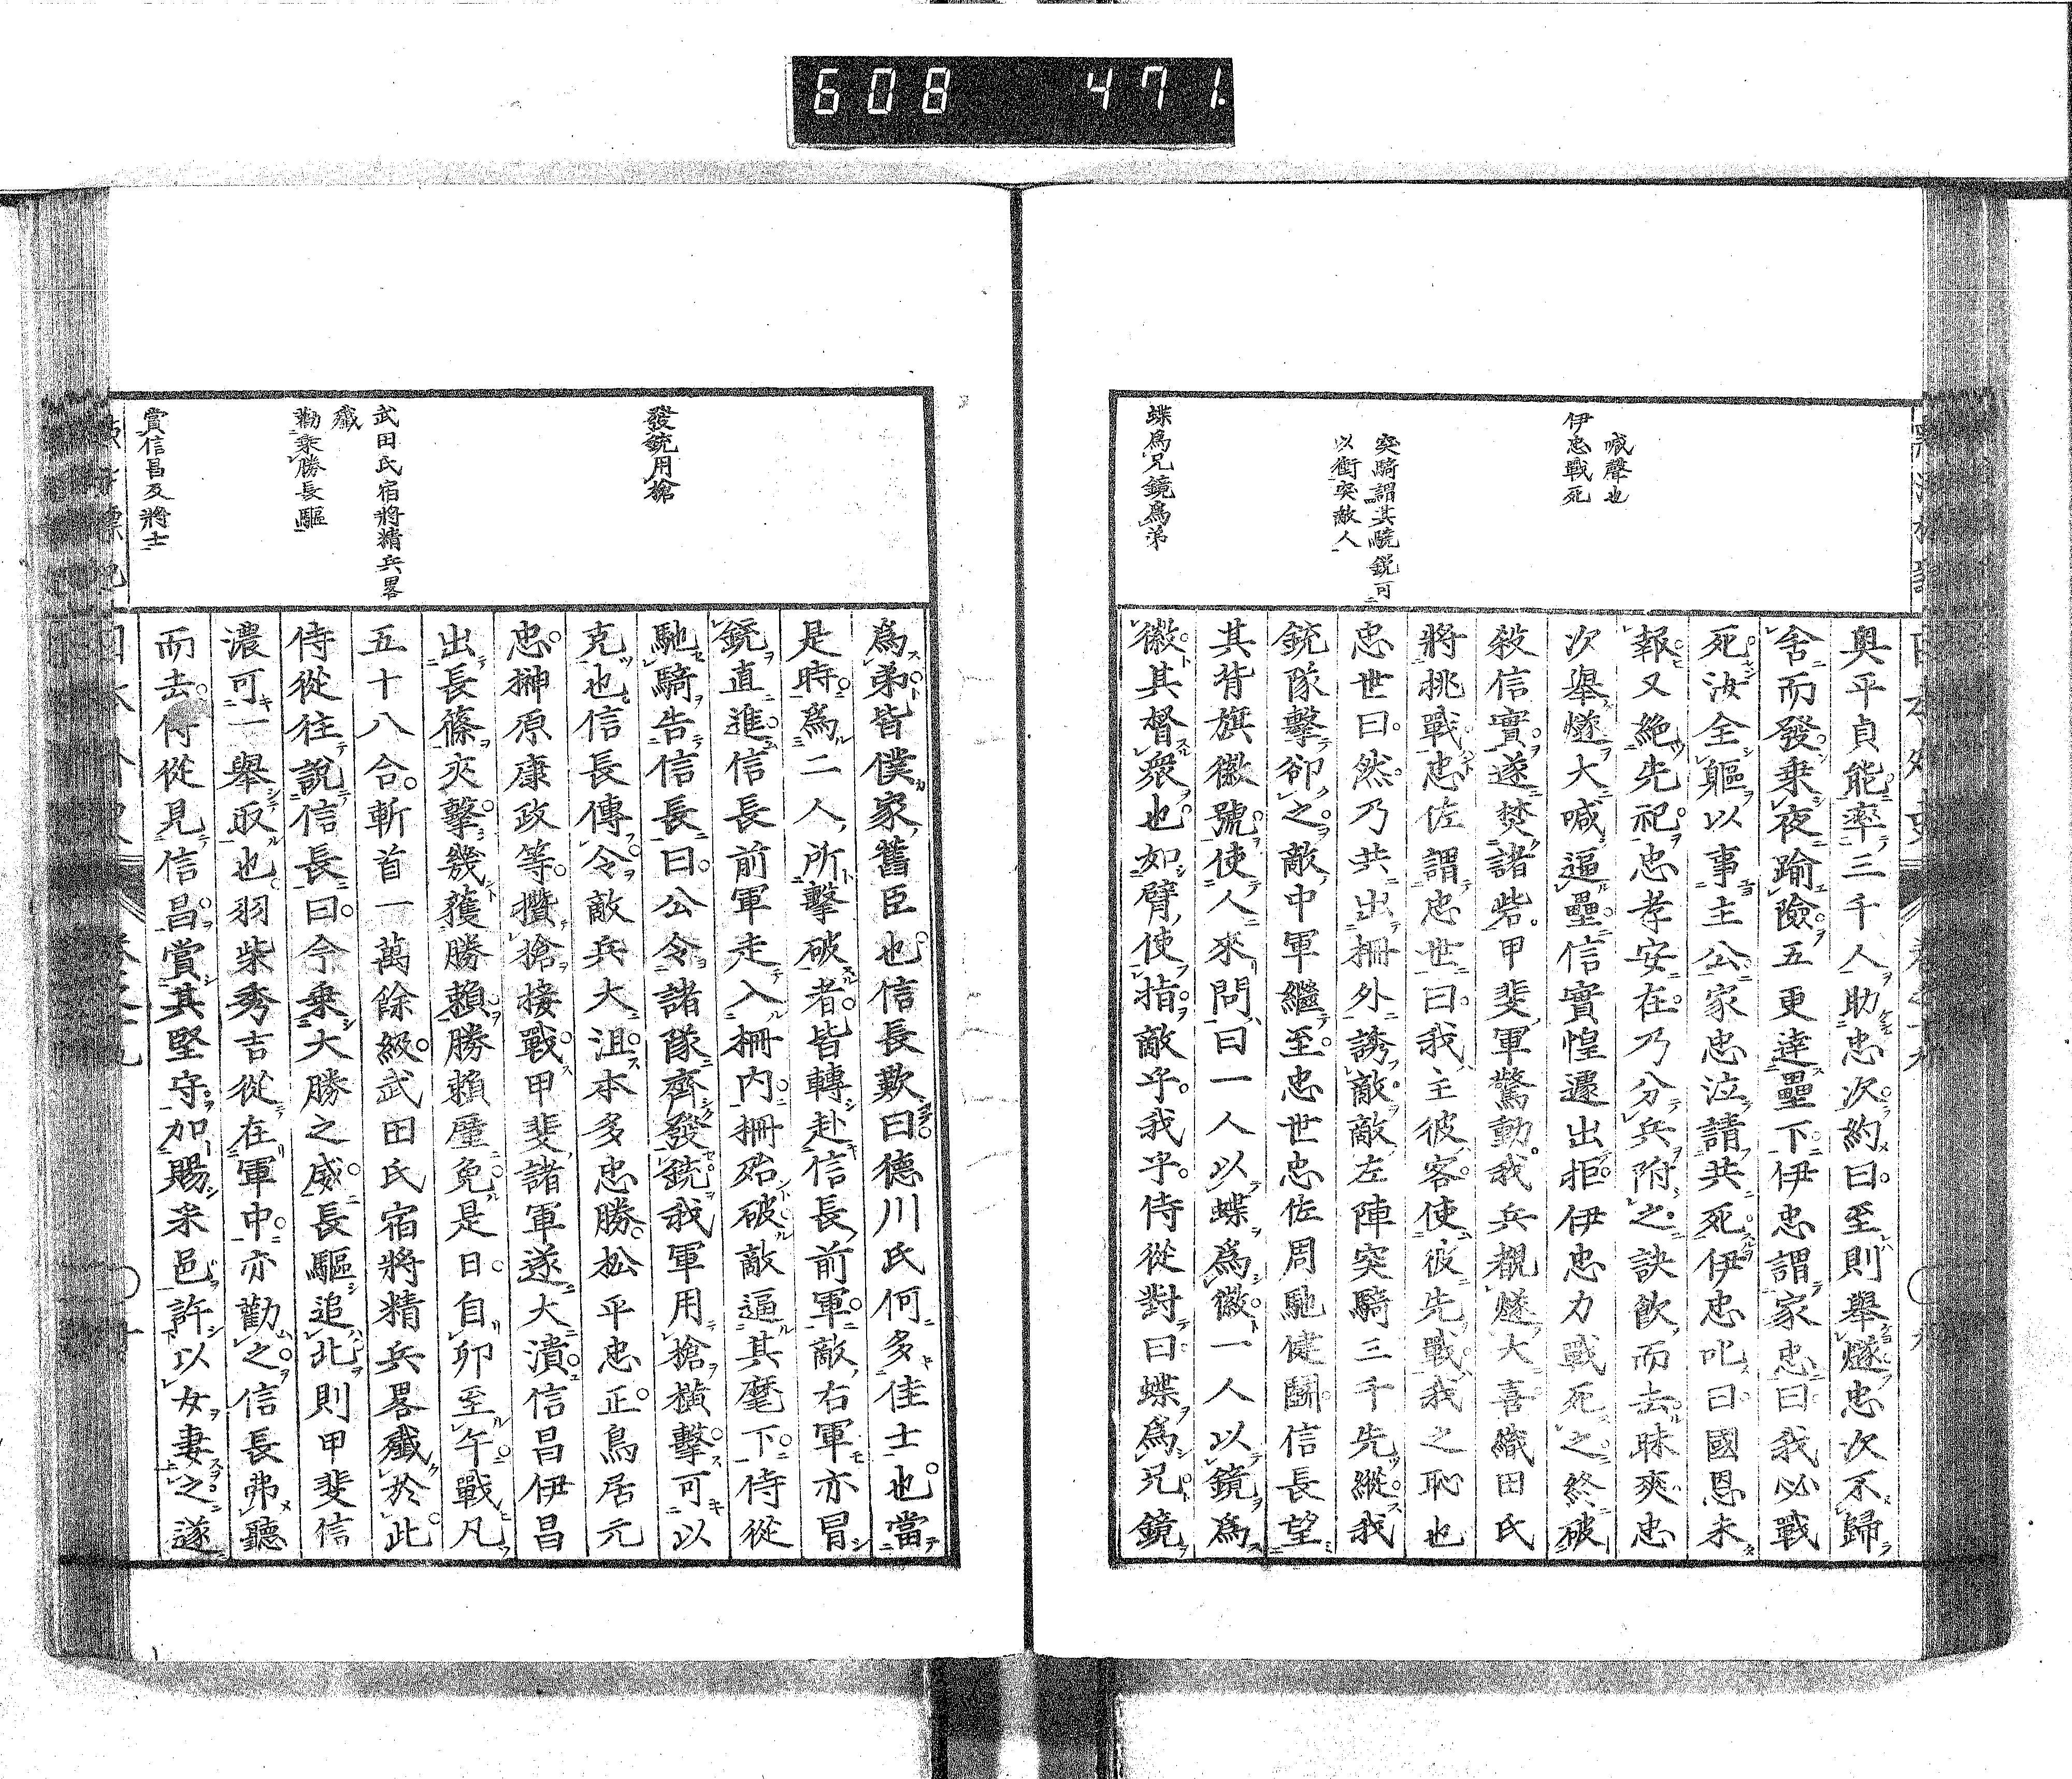 608 471.
喊聲也
伊忠戰死
突騎謂其驍銳可
以衝突敵人
蝶爲兄鏡爲弟
奥平貞能率三千人助忠次約曰至則舉燧忠次不歸
舍而發乘夜踰險五更達壘下伊忠謂家忠曰我必戰
死汝全軀以事主公家忠泣請共死伊忠叱曰國恩未
報又絶先祀忠孝安在乃分兵附之訣飲而去昧爽忠
次舉燧大喊逼壘信實惶遽出拒伊忠力戰死之終破
殺信實遂焚諸砦甲斐軍驚動我兵覩燧大喜織田氏
將挑戰忠佐謂忠世曰我主彼客使彼先戰我之恥也
忠世曰然乃共出柵外誘敵敵左陣突騎三千先縱我
銃隊擊卻之敵中軍繼至忠世忠佐周馳健鬭信長望
其背旗徽號使人來問曰一人以蝶爲徽一人以鏡爲
徽其督衆也如臂使指敵乎我乎侍從對曰蝶爲兄鏡
發銃用槍
武田氏宿將精兵畧
殲
勸乘勝長驅
賞信昌及將士
爲弟皆僕家舊臣也信長歎曰德川氏何多佳士也當
是時爲二人所擊破者皆轉赴信長前軍敵右軍亦冒
銃直進信長前軍走入柵内柵殆破敵逼其麾下侍從
馳騎告信長曰公令諸隊齊發銃我軍用槍橫擊可以
克也信長傳令敵兵大沮本多忠勝松平忠正鳥居元
忠榊原康政等攢槍接戰甲斐諸軍遂大潰信昌伊昌
出長篠夾擊幾獲勝賴勝賴廑免是日自卯至午戰凡
五十八合斬首一萬餘級武田氏宿將精兵畧殲於此
侍從往說信長曰今乘大勝之威長驅追北則甲斐信
濃可一舉取也羽柴秀吉從在軍中亦勸之信長弗聽
而去侍從見信昌賞其堅守加賜釆邑許以女妻之遂